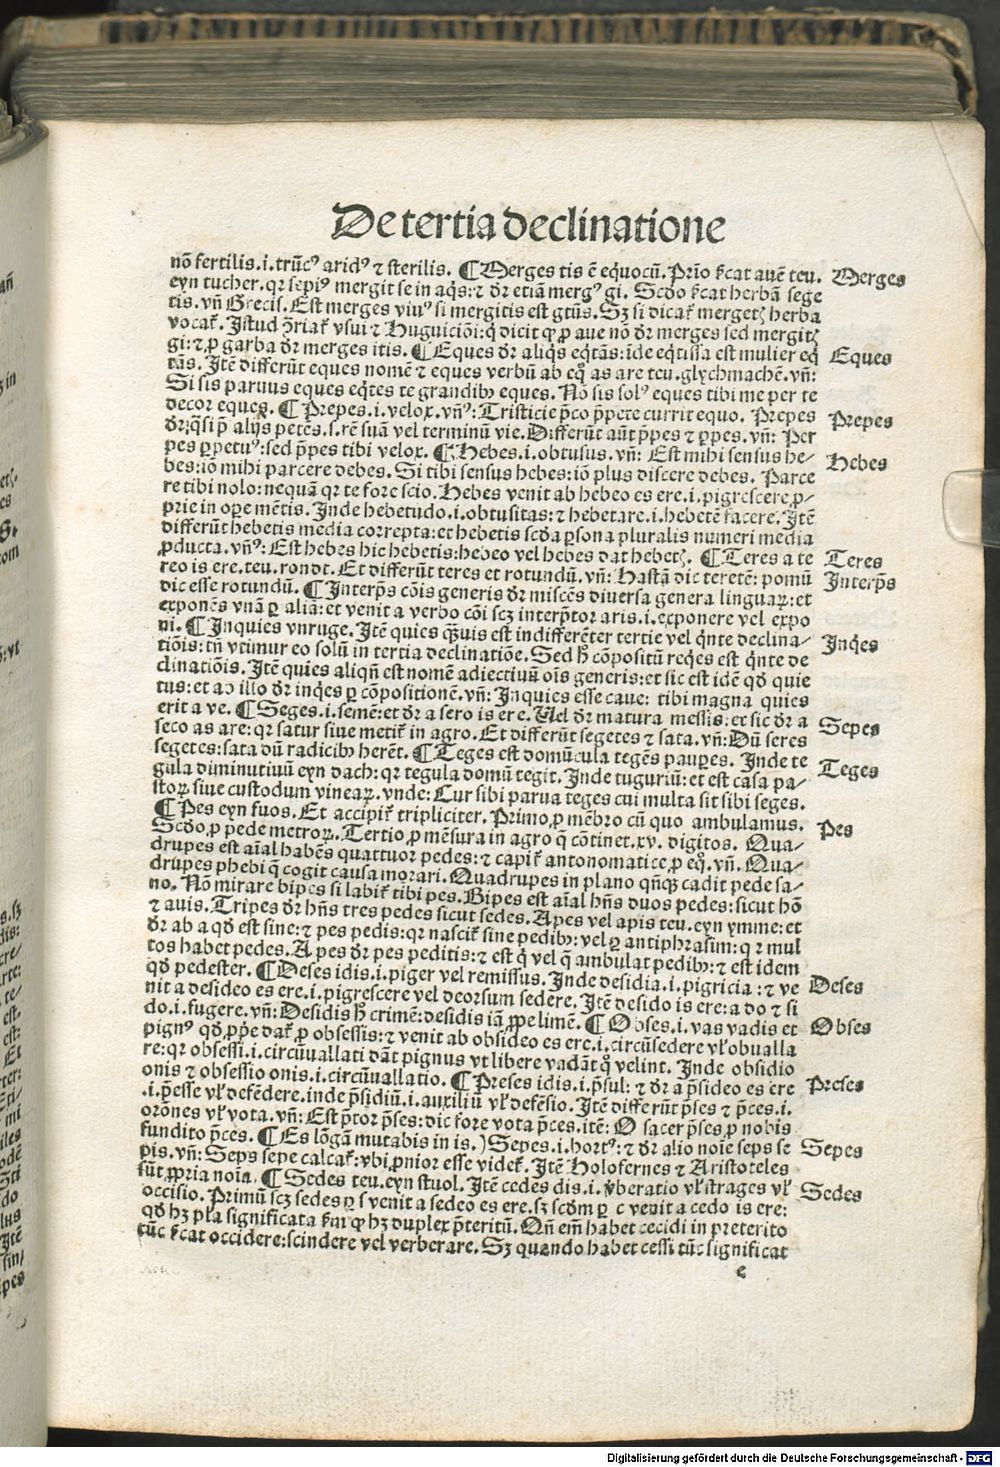 De tertia declinatione
nõ fertilis.i.trũcꝰ aridꝰ ⁊ sterilis. ¶Merges tis ẽ equocũ. Prĩo ſĩcat auẽ teu. Merges
eyn tucher. qꝛ sepiꝰ mergit se in aq̃s: ⁊ dꝛ etiã mergꝰ gi. Scďo ſĩcat herbã sege
tis. vñ Grecis. Est merges viuꝰ si mergitis est gtũs. Sꝫ si dicat̃ merget̃ herba
gi: ⁊ ꝓ garba dꝛ merges itis. ¶Eques dꝛ aliq̃s eq̃tãs: ĩde eq̃tissa est mulier eq̃ Eques
tãs. Itẽ differũt eques nomẽ ⁊ eques verbũ ab eq̃o as are teu. glychmachẽ. vñ:
Si sis paruus eques eq̃tes te grandibꝫ eques. Nõ sis solꝰ eques tibi me per te
decor eques. ¶Prepes.i.velox. vñꝰ: Tristicie p̃co p̃pete currit equo. Prepes Prepes
pes ꝑpetuꝰ: sed p̃pes tibi velox. ¶Hebes.i.obtusus. vñ: Est mihi sensus he- Hebes
bes: iõ mihi parcere debes. Si tibi sensus hebes: iõ plus discere debes. Parce
re tibi nolo: nequã qꝛ te fore scio. Hebes venit ab hebeo es ere.i.pigrescere ꝓ-
prie in oꝑe mẽtis. Inde hebetudo.i.obtusitas: ⁊ hebetare.i.hebetẽ facere. Itẽ
differũt hebetis media correpta: et hebetis scďa ꝑsona pluralis numeri media
ꝓducta. vñꝰ: Est hebes hic hebetis: hebeo vel hebes dat hebetꝫ. ¶Teres a te Teres
reo is ere. teu. rondt. Et differũt teres et rotundũ. vñ: Hastã dic teretẽ: pomũ Interp̃s
dic esse rotundũ. ¶Interp̃s cõis generis dꝛ miscẽs diuersa genera linguaꝝ: et
exponẽs vnã ꝑ aliã: et venit a verbo cõi scꝫ interp̃tor aris.i.exponere vel expo
ni. ¶Inquies vnruge. Itẽ quies q̃uis est indifferẽter tertie vel q̃nte declina- Inq̃es
tiõis: tñ vtimur eo solũ in tertia declinatiõe. Sed hͦ cõpositũ req̃es est q̃nte de
clinatiõis. Itẽ quies aliqñ est nomẽ adiectiuũ oĩs generis: et sic est idẽ qď quie
tus: et ab illo dꝛ inq̃es ꝑ cõpositionẽ. vñ: Inquies esse caue: tibi magna quies
erit a ve. ¶Seges.i.semẽ: et dꝛ a sero is ere. Vel dꝛ matura messis: et sic dꝛ a Sepes
seco as are: qꝛ satur siue metit̃ in agro. Et differũt segetes ⁊ sata. vñ: Dũ seres
segetes: sata dũ radicibꝫ herẽt. ¶Teges est domũcula tegẽs pauꝑes. Inde te Teges
gula diminutiuũ eyn dach: qꝛ tegula domũ tegit. Inde tuguriũ: et est casa pa-
stoꝝ siue custodum vineaꝝ. vnde: Cur sibi parua teges cui multa sit sibi seges.
¶Pes eyn fuos. Et accipit̃ tripliciter. Primo, ꝓ mẽbro cũ quo ambulamus. Pes
Scďo, ꝓ pede metroꝝ. Tertio, ꝓ mẽsura in agro q̃ cõtinet. xv. digitos. Qua-
drupes est aĩal habẽs quattuor pedes: ⁊ capit̃ antonomatice, ꝓ eq̃o. vñ. Qua-
drupes phebi q̃ cogit causa morari. Quadrupes in plano qñqꝫ cadit pede sa-
no. Nõ mirare bipes si labit̃ tibi pes. Bipes est aĩal hñs duos pedes: sicut hõ
⁊ auis. Tripes dꝛ hñs tres pedes sicut sedes. Apes vel apis teu. eyn ymme: et
dꝛ ab a qď est sine: ⁊ pes pedis: qꝛ nascit̃ sine pedibꝫ: vel ꝑ antiphrasim: qꝛ mul
tos habet pedes. Apes dꝛ pes peditis: ⁊ est q̃ vel q̃ ambulat pedibꝫ: ⁊ est idem
qď pedester. ¶Deses idis.i.piger vel remissus. Inde desidia.i.pigricia: ⁊ ve Deses
nit a desideo es ere.i.pigrescere vel deorsum sedere. Itẽ desido is ere: a do ⁊ si
do.i.fugere. vñ: Desidis hͦ crimẽ: desidis iã ꝓpe limẽ. ¶Obses.i.vas vadis et Obses
pignꝰ qď ꝓp̃e dat̃ ꝓ obsessis: ⁊ venit ab obsideo es ere.i.circũsedere vl̃ obualla
re: qꝛ obsessi.i.circũuallati dãt pignus vt libere vadãt q̃o velint. Inde obsidio
onis ⁊ obsessio onis.i.circũuallatio. ¶Preses idis.i.p̃sul: ⁊ dꝛ a p̃sideo es ere Preses
.i.p̃esse vl̃ defẽdere. inde p̃sidiũ.i.auxiliũ vl̃ defẽsio. Itẽ differũt p̃ses ⁊ p̃ces.i.
orõnes vl̃ vota. vñ: Est p̃tor p̃ses: dic fore vota p̃ces. itẽ: O sacer p̃ses, ꝓ nobis
fundito p̃ces. ¶Es lõgã mutabis in is.) Sepes.i.hortꝰ: ⁊ dꝛ alio noĩe seps se Sepes
pis. vñ: Seps sepe calcat̃: vbi ꝓnior esse videt̃. Itẽ Holofernes ⁊ Aristoteles
sũt ꝓpria noĩa. ¶Sedes teu. eyn stuol. Itẽ cedes dis.i.verberatio vl̃ strages vl̃ Sedes
occisio. Primũ scꝫ sedes ꝑ s venit a sedeo es ere. sꝫ scďm ꝑ c venit a cedo is ere:
qď hꝫ pl̃a significata ẜm ꝙ hꝫ duplex p̃teritũ. Qñ em̃ habet cecidi in preterito
tũc ſĩcat occidere: scindere vel verberare. Sꝫ quando habet cessi tũc significat
e
Digitalisierung gefördert durch die Deutsche Forschungsgemeinschaft - DFG